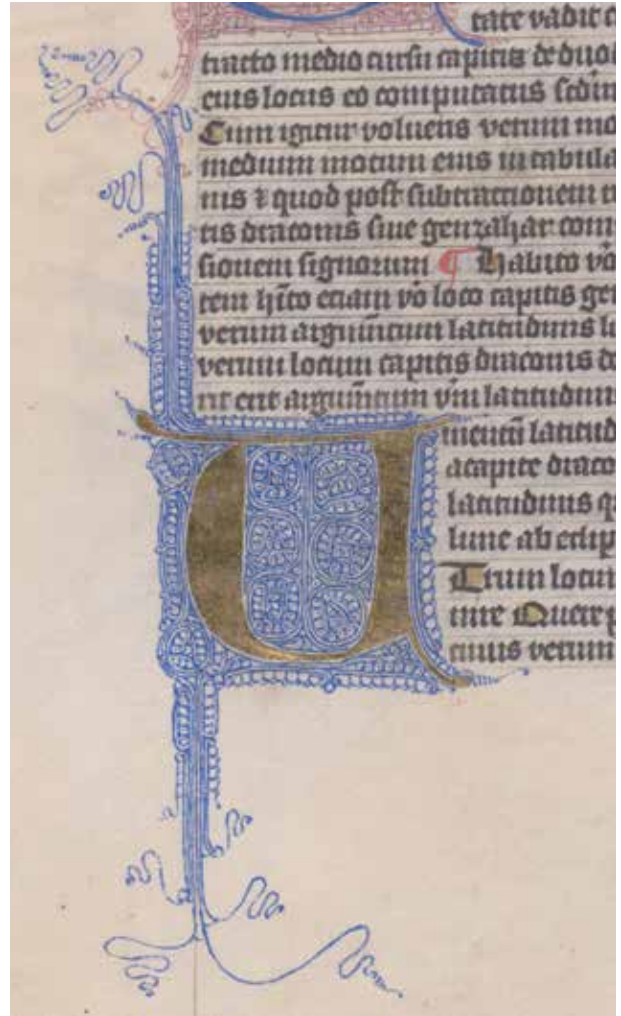 tate vadit c
tracto medio cursu capitis de duo
eius locus eo computatus
Cum igitur volueris verum mo
medium motum eius in tabula
nis ⁊ quod post subtractionem
tis draconis siue genzahar com
sionem signorum ¶ Habito vo
tem hito etiam vo loco capitis ge
verum argumtum latitudinis l
verum locum capitis draconis de
argumtum vm latitudini
U mentu latitud
acapite draco
latitudinus q
lune ab eclip
locum
ture Quere
cuius verum